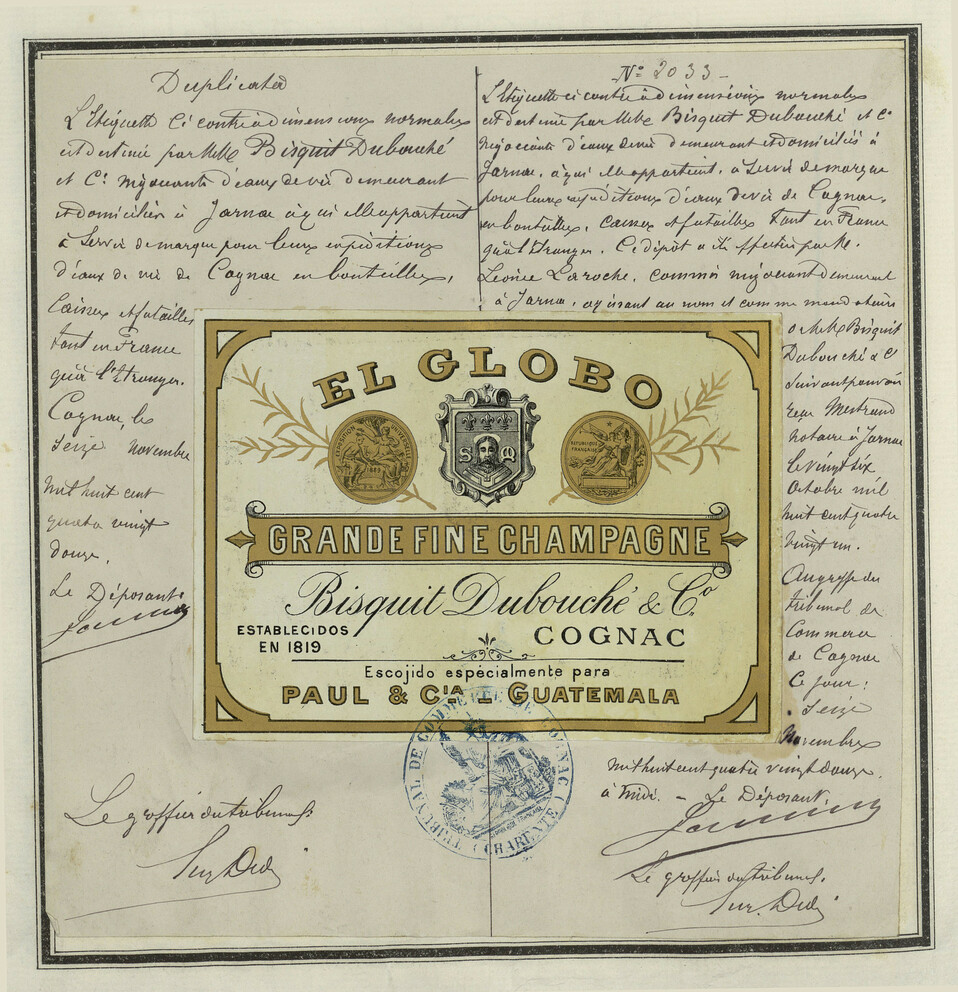 Duplicata
L'Etiquette ci contre à dimensions normales
est destinée par MM. Bisquit Dubouché
et Cie négociants d'eaux de vie demeurant
et domiciliés à Jarnac à qui elle appartient
à servir de marque pour leurs expéditions
d'eaux de vie de Cognac en bouteilles,
Caisses et futailles
tant en France
qu'à l'Etranger.
Cognac, le
seize Novembre
mil huit cent
quatre vingt
douze.
Le Déposant
Le greffier du tribunal
N° 2033
L'Etiquette ci contre à dimensions normales
est destinée par MM. Bisquit Dubouché et Cie
négociants d'eaux de vie demeurant et domiciliés à
Jarnac, à qui elle appartient, à servir de marque
pour leurs expéditions d'eaux de vie de Cognac,
en bouteilles, caisses et futailles tant en France
qu'à l'Etranger. Ce dépôt a été effectué par M.
Léonce Laroche, commis négociant demeurant
à Jarnac, agissant au nom et comme mandataire
de MM. Bisquit
Dubouché & Cie
suivant pouvoir
reçu Mestraud
notaire à Jarnac
le vingt six
Octobre mil
huit cent quatre
vingt un.
Au greffe du
tribunal de
Commerce
de Cognac
Ce jour:
seize
Novembre
mil huit cent quatre vingt douze.
à midi. - Le Déposant.
Le greffier du tribunal.
EL GLOBO
EXPOSITION UNIVERSELLE
1889
S M
REPUBLIQUE
FRANÇAISE
GRANDE FINE CHAMPAGNE
Bisquit Dubouché & Co.
ESTABLECIDOS
EN 1819
COGNAC
Escojido espécialmente para
PAUL & CIA _ GUATEMALA
TRIBUNAL DE COMMERCE DE COGNAC
(CHARENTE)